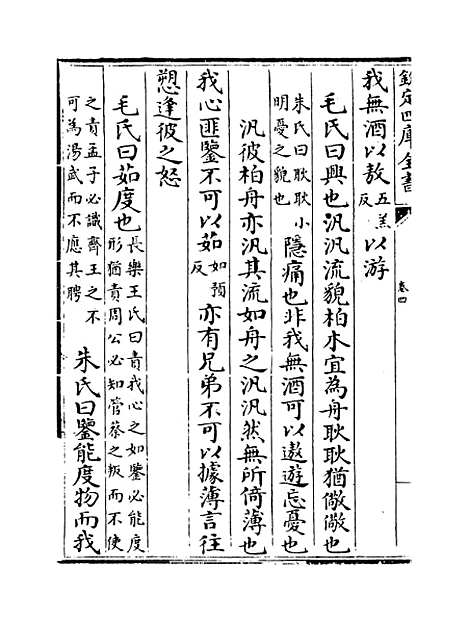 欽定四庫全書
卷四
我無酒以敖五羔反以游
毛氏曰興也汎汎流貌柏木宜為舟耿耿猶儆儆也
朱氏曰耿耿小明憂之貌也隱痛也非我無酒可以遨遊忘憂也
汎彼柏舟亦汎其流如舟之汎汎然無所倚薄也
我心匪鑒不可以茹如預反亦有兄弟不可以據薄言往
愬逢彼之怒
毛氏曰茹度也長樂王氏曰責我心之如鑒必能度形猶責周公必知管蔡之叛而不使
之責孟子必識齊王之不可為湯武而不應其聘朱氏曰鑒能度物而我